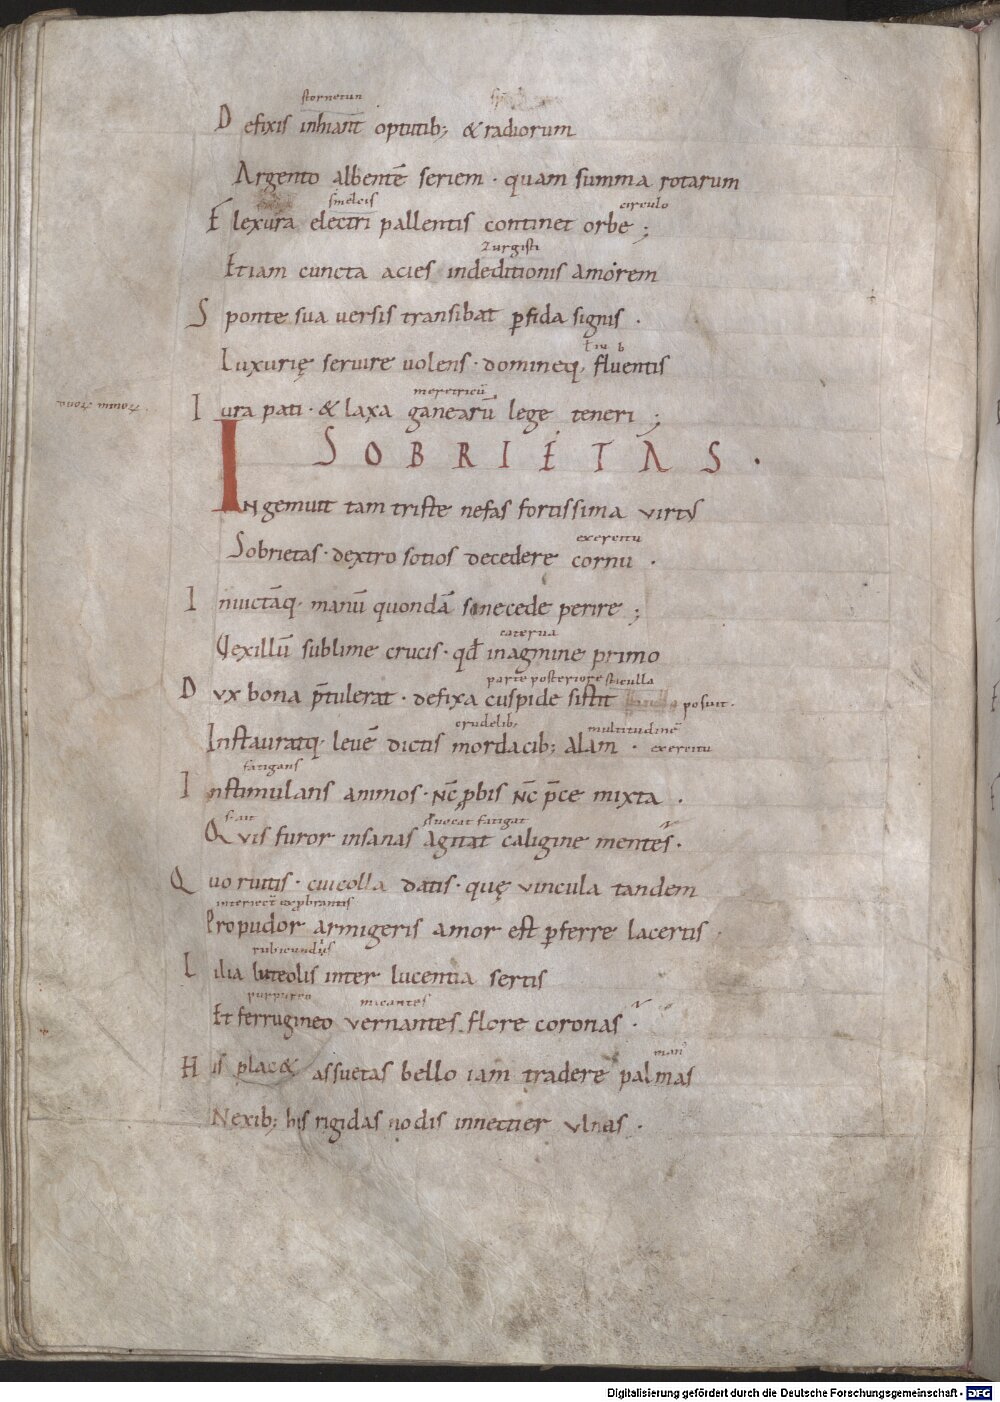 sternetun
D efixis inhiant̄ optutib; & radiorum
Argento albentē seriem · quam summa rotarum
smelcis circulo
F lexura electri pallentis continet orbe ;
zurgisti
Etiam cuncta acies indeditionis amorem
S ponte sua uersis transibat ꝑfida signis ·
Luxurię seruire uolens · domineq; fluentis
meretricū
I ura pati · & laxa ganearū lege teneri ;
SOBRIETAS ·
INgemuit tam triste nefas fortissima virtus
exercitu
Sobrietas · dextro sotios decedere cornu ·
I nuictāq; manū quondā sinecede perire ;
caterua
Vexillū sublime crucis · qđ inagmine primo
parte posteriore sticulla
D ux bona p̄tulerat · defixa cuspide sistit posuit ·
crudelib; multitudinē
Instauratq; leuē dictis mordacib; alam · exercitu
fatigans
I nstimulans animos · nc̄ ꝓbis nc̄ p̄ce mixta ·
fatigat
Quis furor insanas agitat caligine mentes ·
Q uo ruitis · cuicolla datis · quę vincula tandem
Propudor armigeris amor est ꝑferre lacertis ·
L ilia luteolis inter lucentia sertis
purpureo micantes
Et ferrugineo vernantes flore coronas ·
man᷒
H is plac& assuetas bello iam tradere palmas
Nexib; his rigidas nodis innectier ulnas ·
Digitalisierung gefördert durch die Deutsche Forschungsgemeinschaft - DFG